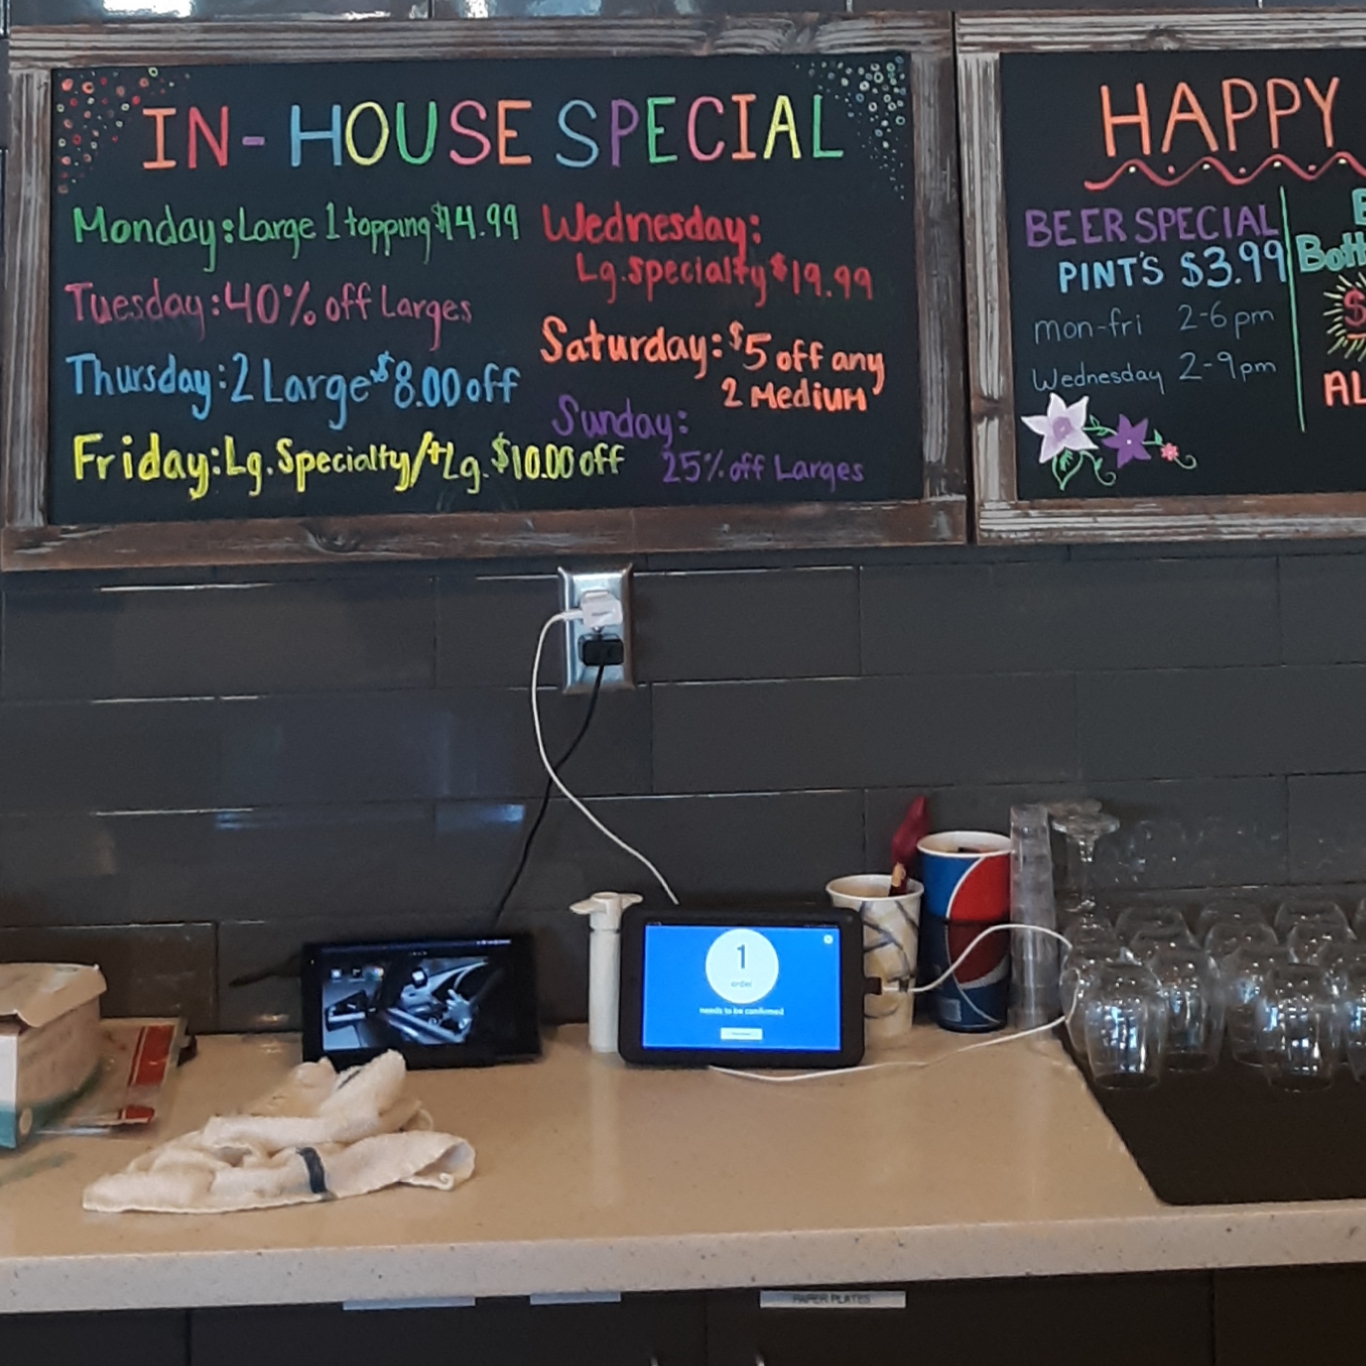 IN-HOUSE SPECIAL
Monday: Large 1 topping $14.99
Tuesday: 40% off Larges
Thursday: 2 Large $8.00 off
Friday: Lg. Specialty/+Lg. $10.00 off
Wednesday:
Lg. specialty $19.99
Saturday: $5 off any
2 MediuM
Sunday:
25% off Larges
HAPPY
BEER SPECIAL
PINT'S $3.99
mon-fri 2-6pm
Wednesday 2-9pm
Bott
$
AL
1
order
needs to be confirmed
PAPER PLATES